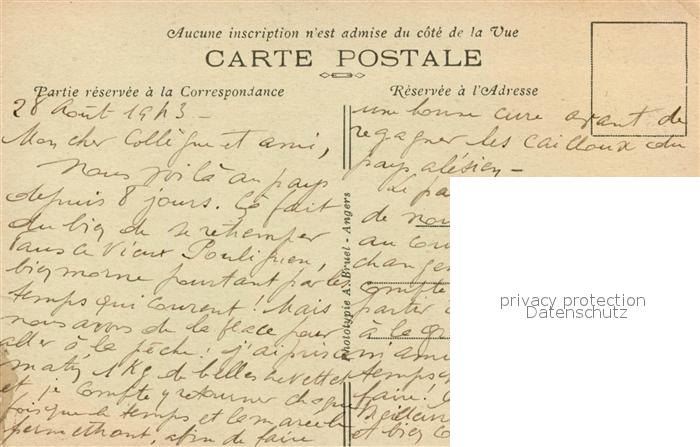 Aucune inscription n'est admise du côté de la Vue
CARTE POSTALE
Partie réservée à la Correspondance
Réservée à l'Adresse
28 Août 1943 -
Mon cher Collègue et ami,
Nous voilà au pays
depuis 8 jours. Ça fait
du bien de se retremper
dans ce vieux Pouliguen,
bien morne pourtant par les
temps qui courent ! Mais
nous avons de la place pour
aller à la pêche ; j'ai pris ce
matin 1 Kg de belles crevettes
et je compte y retourner chaque
fois que le temps et la marée le
permettront, afin de faire
Phototypie A. Bruel - Angers
une bonne cure avant de
regagner les cailloux du
pays alésien -
de nou
au cou
chang
compte
partir
à la
ami
temps
faire.
Meilleur
et bien
privacy protection
Datenschutz